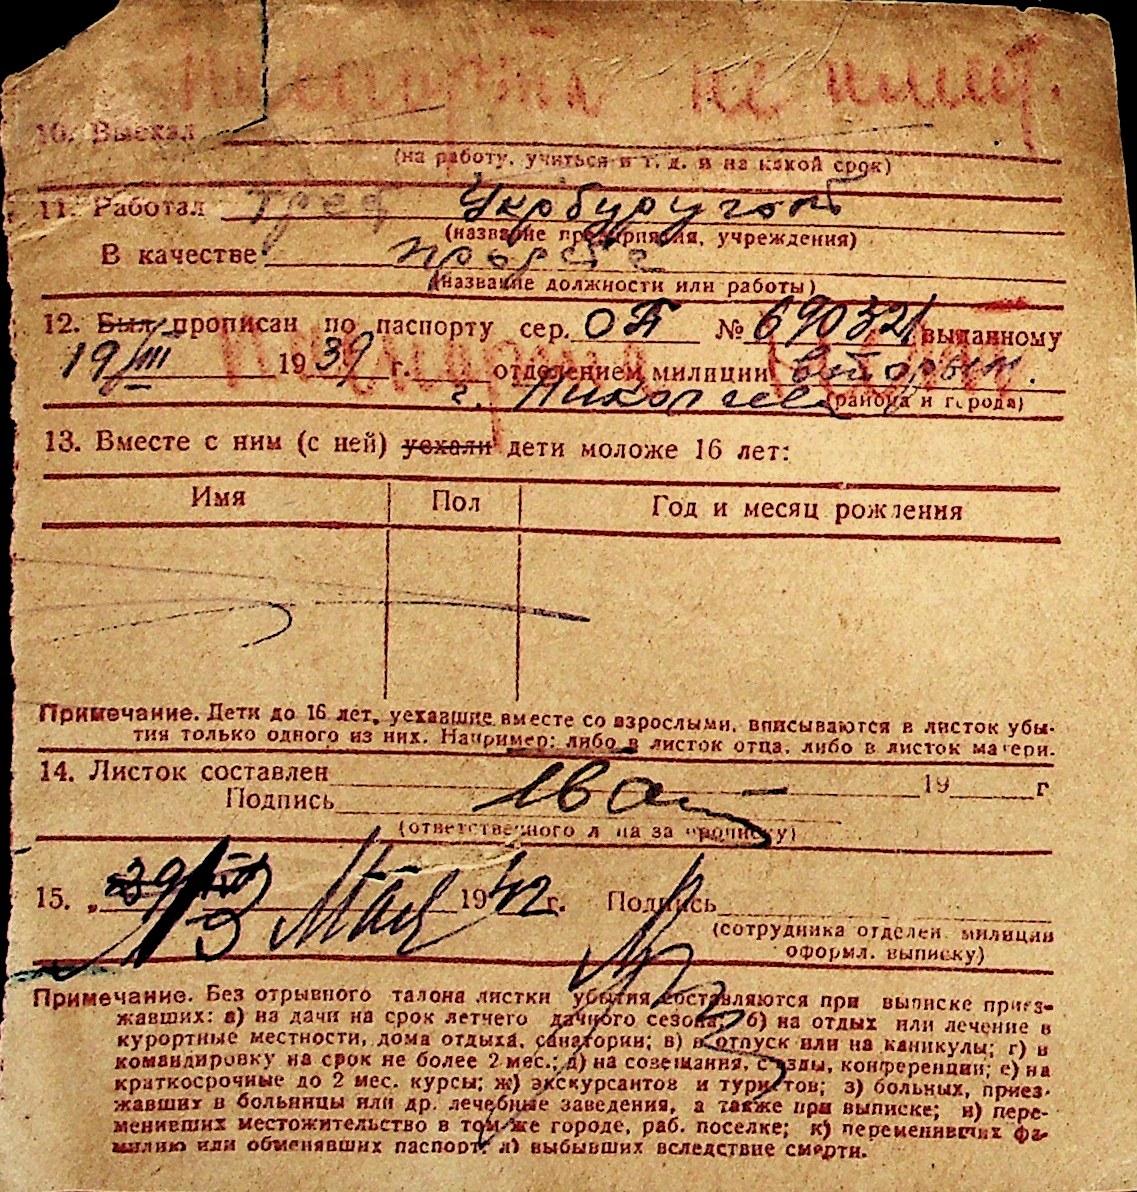 Паспорта не имеет.
10. Выехал
(на работу, учиться и т. д. и на какой срок)
11. Работал трест
(название предприятия, учреждения)
В качестве
(название должности или работы)
12. Был прописан по паспорту сер. ОП № 690321 выданному
19/III 1939 г. отделением милиции вторым.
г. Николаев (района и города)
13. Вместе с ним (с ней) уехали дети моложе 16 лет:
Имя Пол Год и месяц рождения
Примечание. Дети до 16 лет, уехавшие вместе со взрослыми, вписываются в листок убы-
тия только одного из них. Например: либо в листок отца, либо в листок матери.
14. Листок составлен 19 г
Подпись
(ответственного лица за прописку)
15. „ 9 Мая 1942 г. Подпись
(сотрудника отделен. милиции
оформл. выписку)
Примечание. Без отрывного талона листки убытия составляются при выписке приез-
жавших: а) на дачи на срок летнего дачного сезона; б) на отдых или лечение в
курортные местности, дома отдыха, санатории; в) в отпуск или на каникулы; г) в
командировку на срок не более 2 мес.; д) на совещания, съезды, конференции; е) на
краткосрочные до 2 мес. курсы; ж) экскурсантов и туристов; з) больных, приез-
жавших в больницы или др. лечебные заведения, а также при выписке; и) пере-
менивших местожительство в том же городе, раб. поселке; к) переменивших фа-
милию или обменявших паспорт; л) выбывших вследствие смерти.